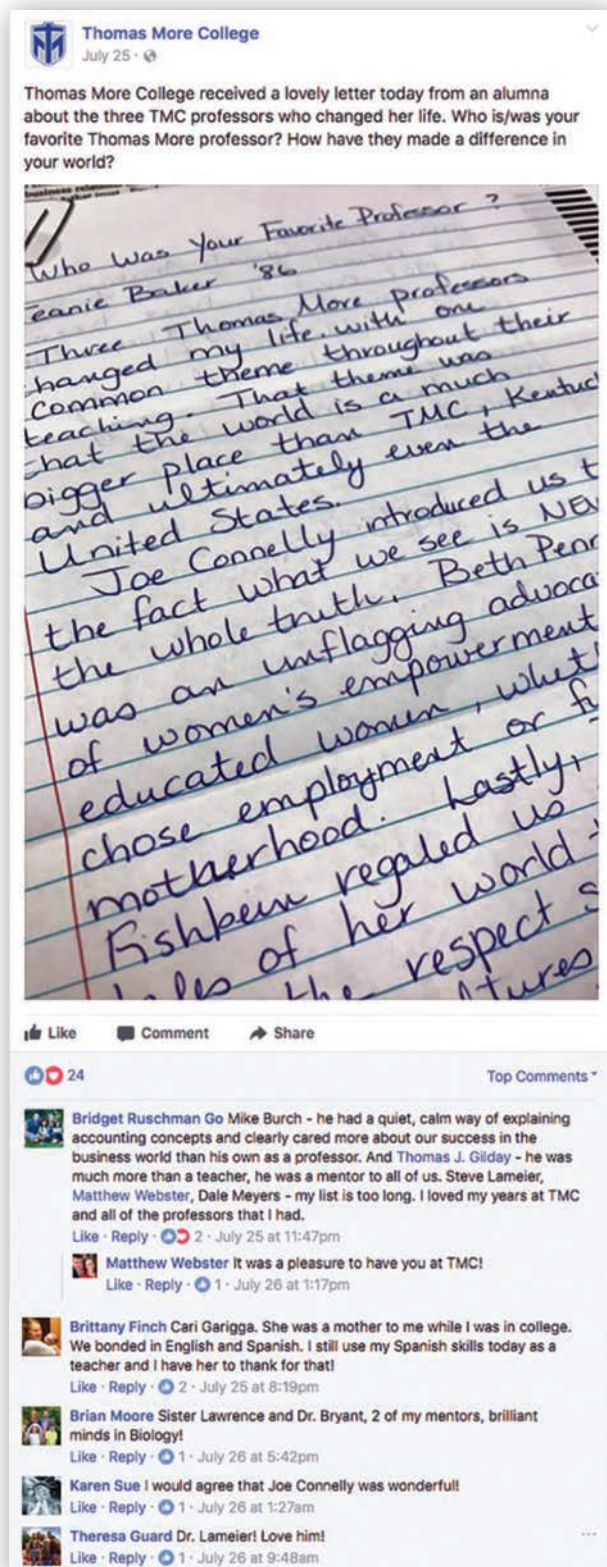 Thomas More College
July 25 ·
Thomas More College received a lovely letter today from an alumna
about the three TMC professors who changed her life. Who is/was your
favorite Thomas More professor? How have they made a difference in
your world?
Who Was Your Favorite Professor?
eanie Baker '86
Three Thomas More professors
hanged my life with one
common theme throughout their
teaching. That theme was
that the world is a much
bigger place than TMC, Kentuc
and ultimately even the
United States.
Joe Connelly introduced us t
the fact what we see is NEV
the whole truth. Beth Penn
was an unflagging advoca
of women's empowerment
educated women, whet
chose employment or f
motherhood. Lastly,
Fishbein regaled us
of her world
the respect s
tures
Like Comment Share
24 Top Comments
Bridget Ruschman Go Mike Burch - he had a quiet, calm way of explaining
accounting concepts and clearly cared more about our success in the
business world than his own as a professor. And Thomas J. Gilday - he was
much more than a teacher, he was a mentor to all of us. Steve Lameier,
Matthew Webster, Dale Meyers - my list is too long. I loved my years at TMC
and all of the professors that I had.
Like · Reply · 2 · July 25 at 11:47pm
Matthew Webster It was a pleasure to have you at TMC!
Like · Reply · 1 · July 26 at 1:17pm
Brittany Finch Cari Garigga. She was a mother to me while I was in college.
We bonded in English and Spanish. I still use my Spanish skills today as a
teacher and I have her to thank for that!
Like · Reply · 2 · July 25 at 8:19pm
Brian Moore Sister Lawrence and Dr. Bryant, 2 of my mentors, brilliant
minds in Biology!
Like · Reply · 1 · July 26 at 5:42pm
Karen Sue I would agree that Joe Connelly was wonderful!
Like · Reply · 1 · July 26 at 1:27am
Theresa Guard Dr. Lameier! Love him!
Like · Reply · 1 · July 26 at 9:48am